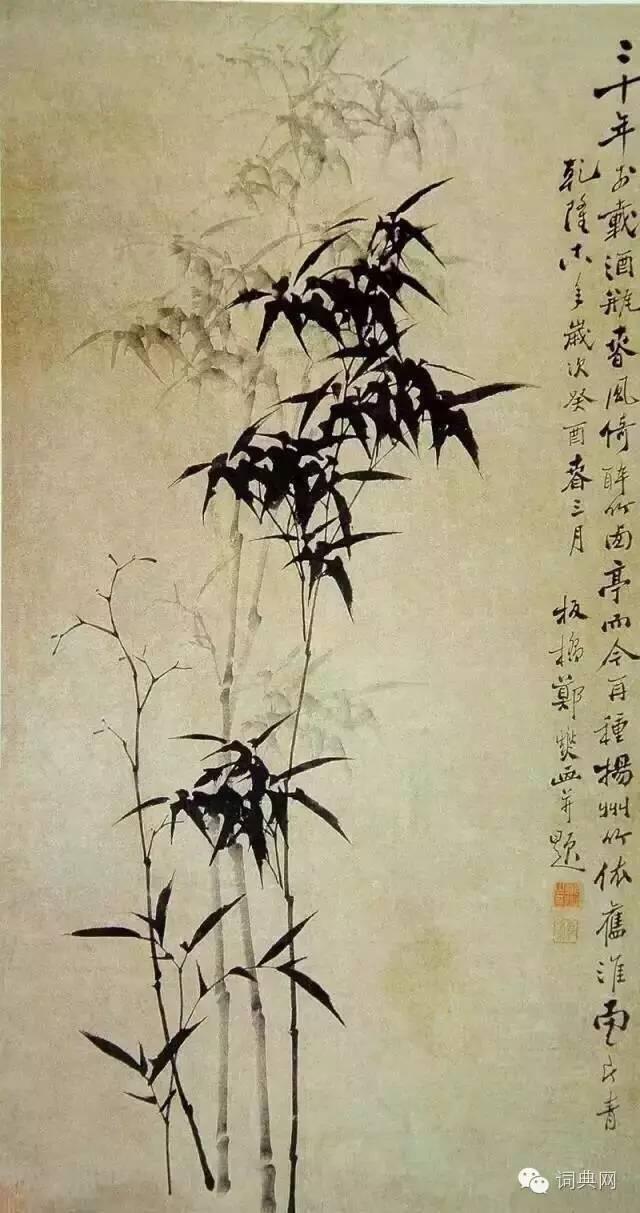 三十年前載酒瓶春風倚醉竹西亭而今再種揚州竹依舊淮南一片青
乾隆十八年歲次癸酉春三月
板橋鄭燮畫并題
词典网